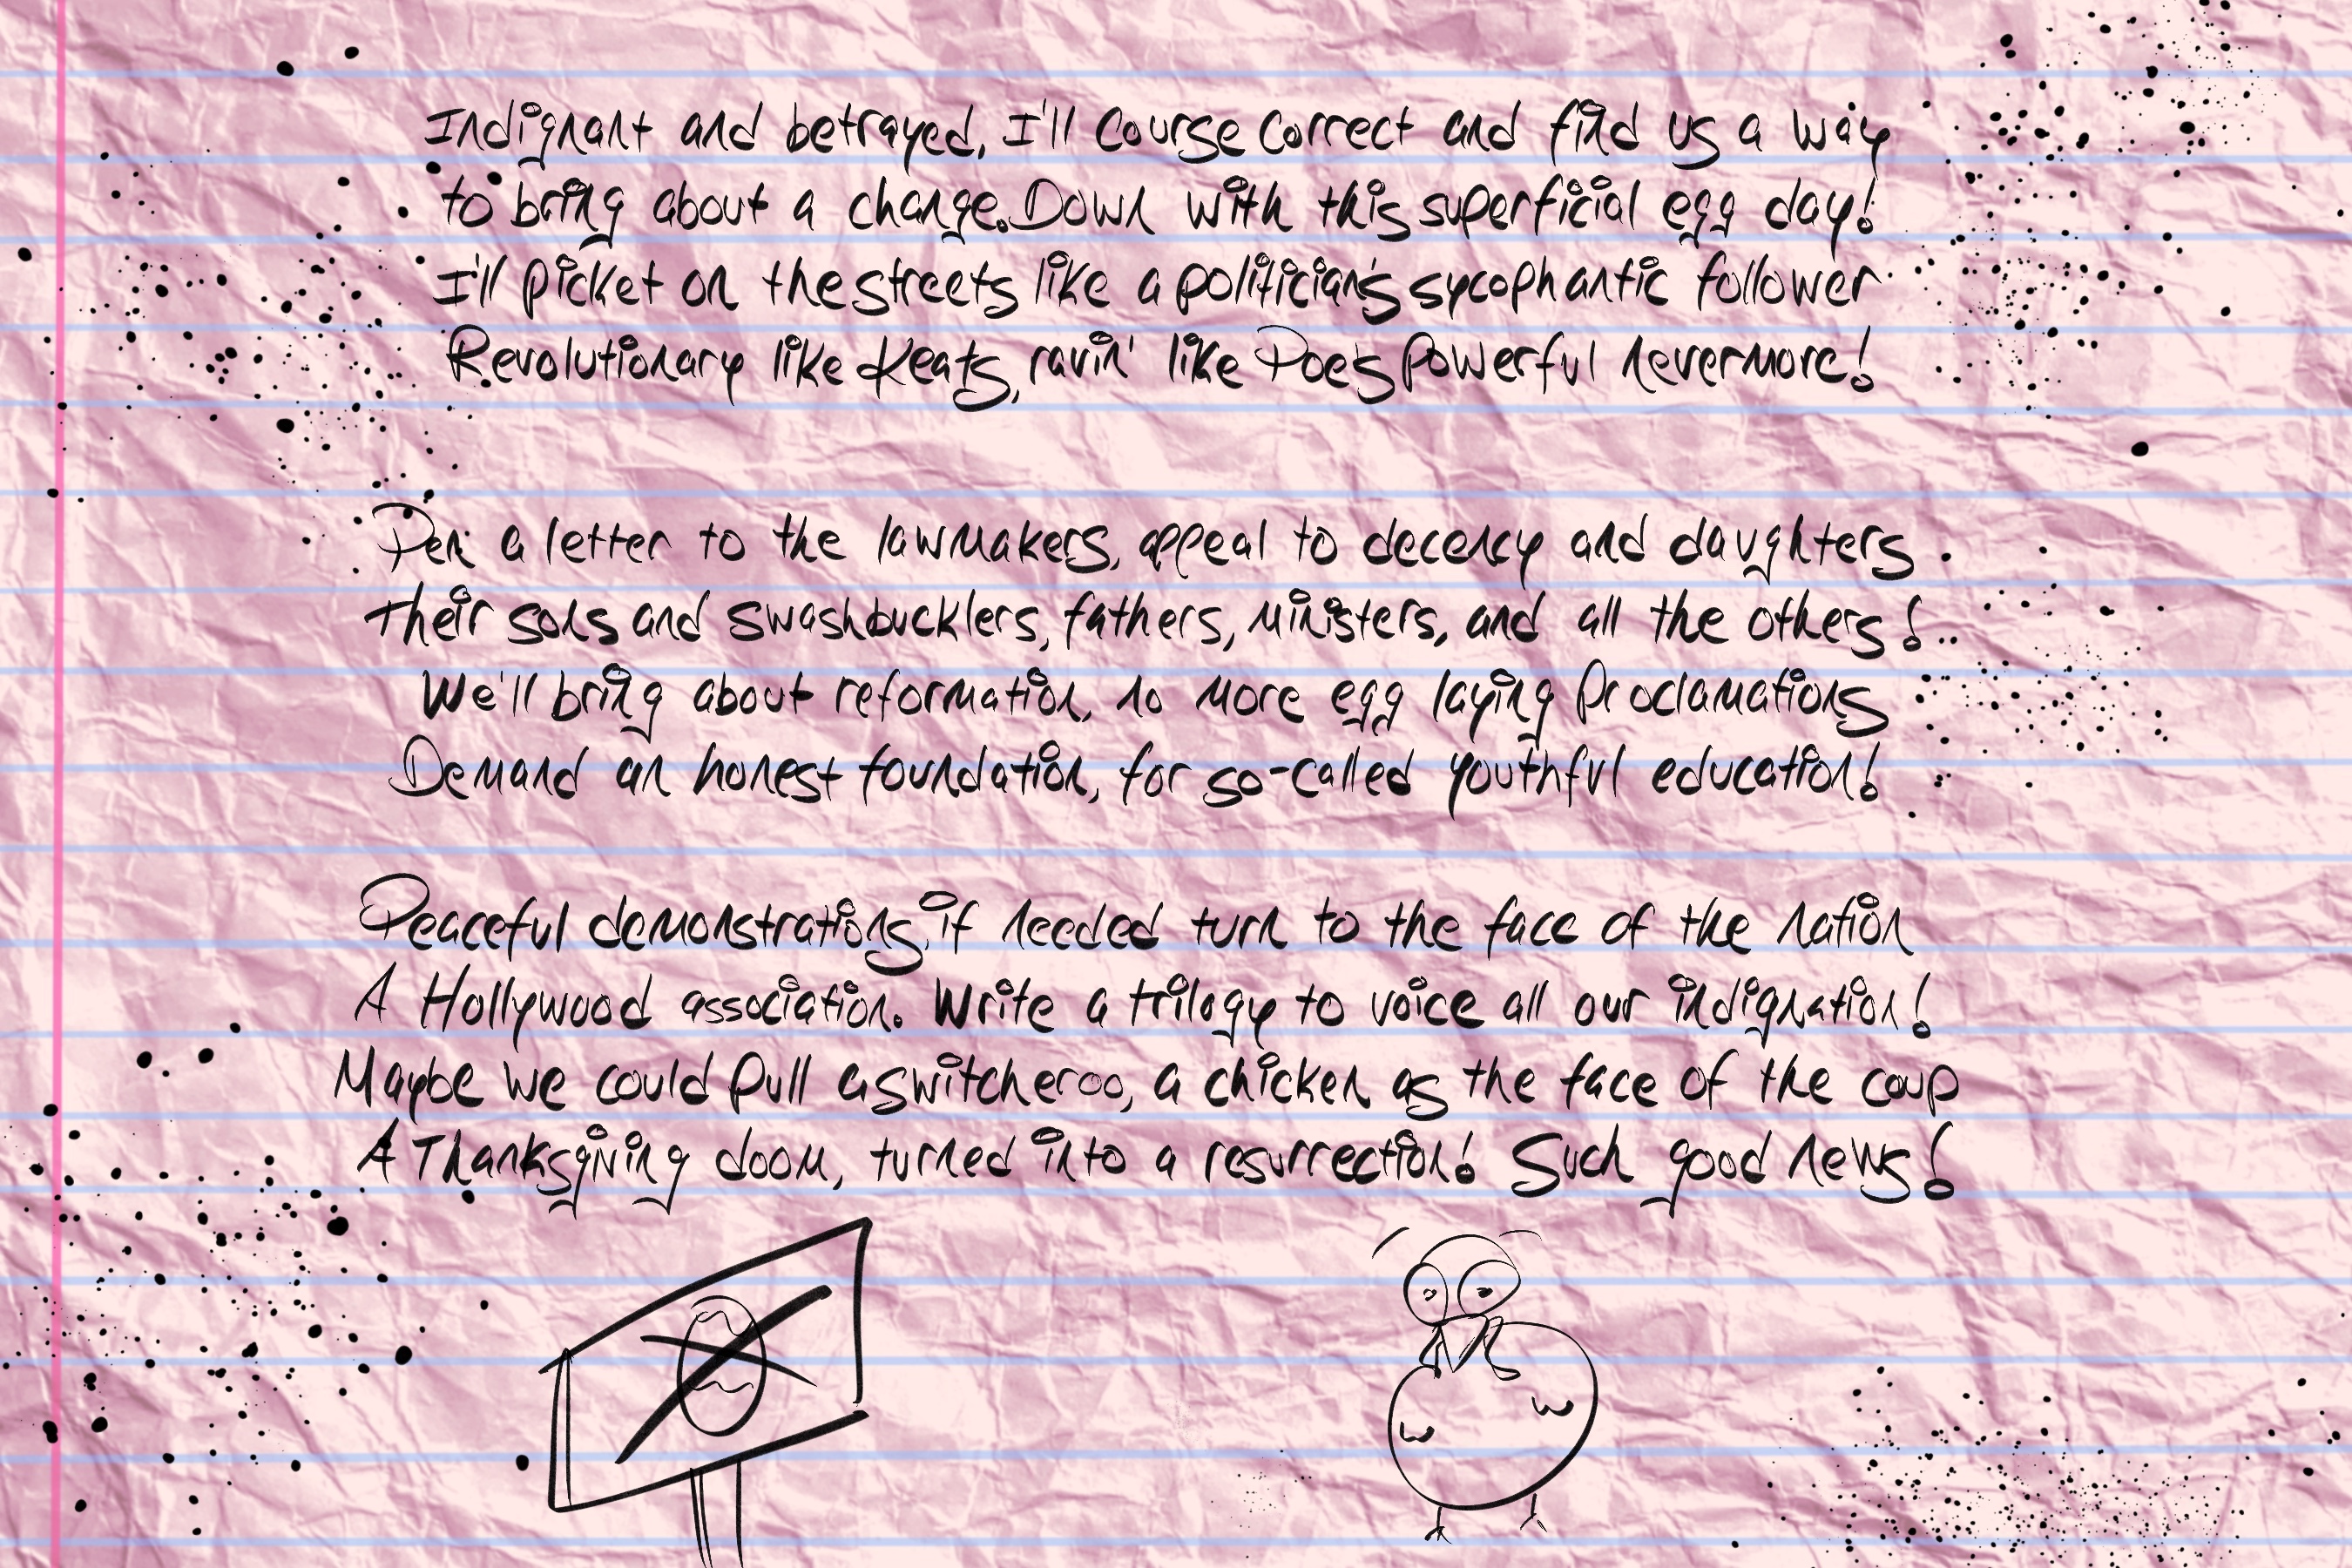 Indignant and betrayed, I'll course correct and find us a way
to bring about a change. Down with this superficial egg day!
I'll picket on the streets like a politician's sycophantic follower
Revolutionary like Keats, ravin' like Poe's powerful nevermore!
Pen a letter to the lawmakers, appeal to decency and daughters.
Their sons and swashbucklers, fathers, ministers, and all the others!
We'll bring about reformation, no more egg laying proclamations
Demand an honest foundation, for so-called youthful education!
Peaceful demonstrations, if needed turn to the face of the nation
A Hollywood association. Write a trilogy to voice all our indignation!
Maybe we could pull a switcheroo, a chicken as the face of the coup
A Thanksgiving doom, turned into a resurrection! Such good news!